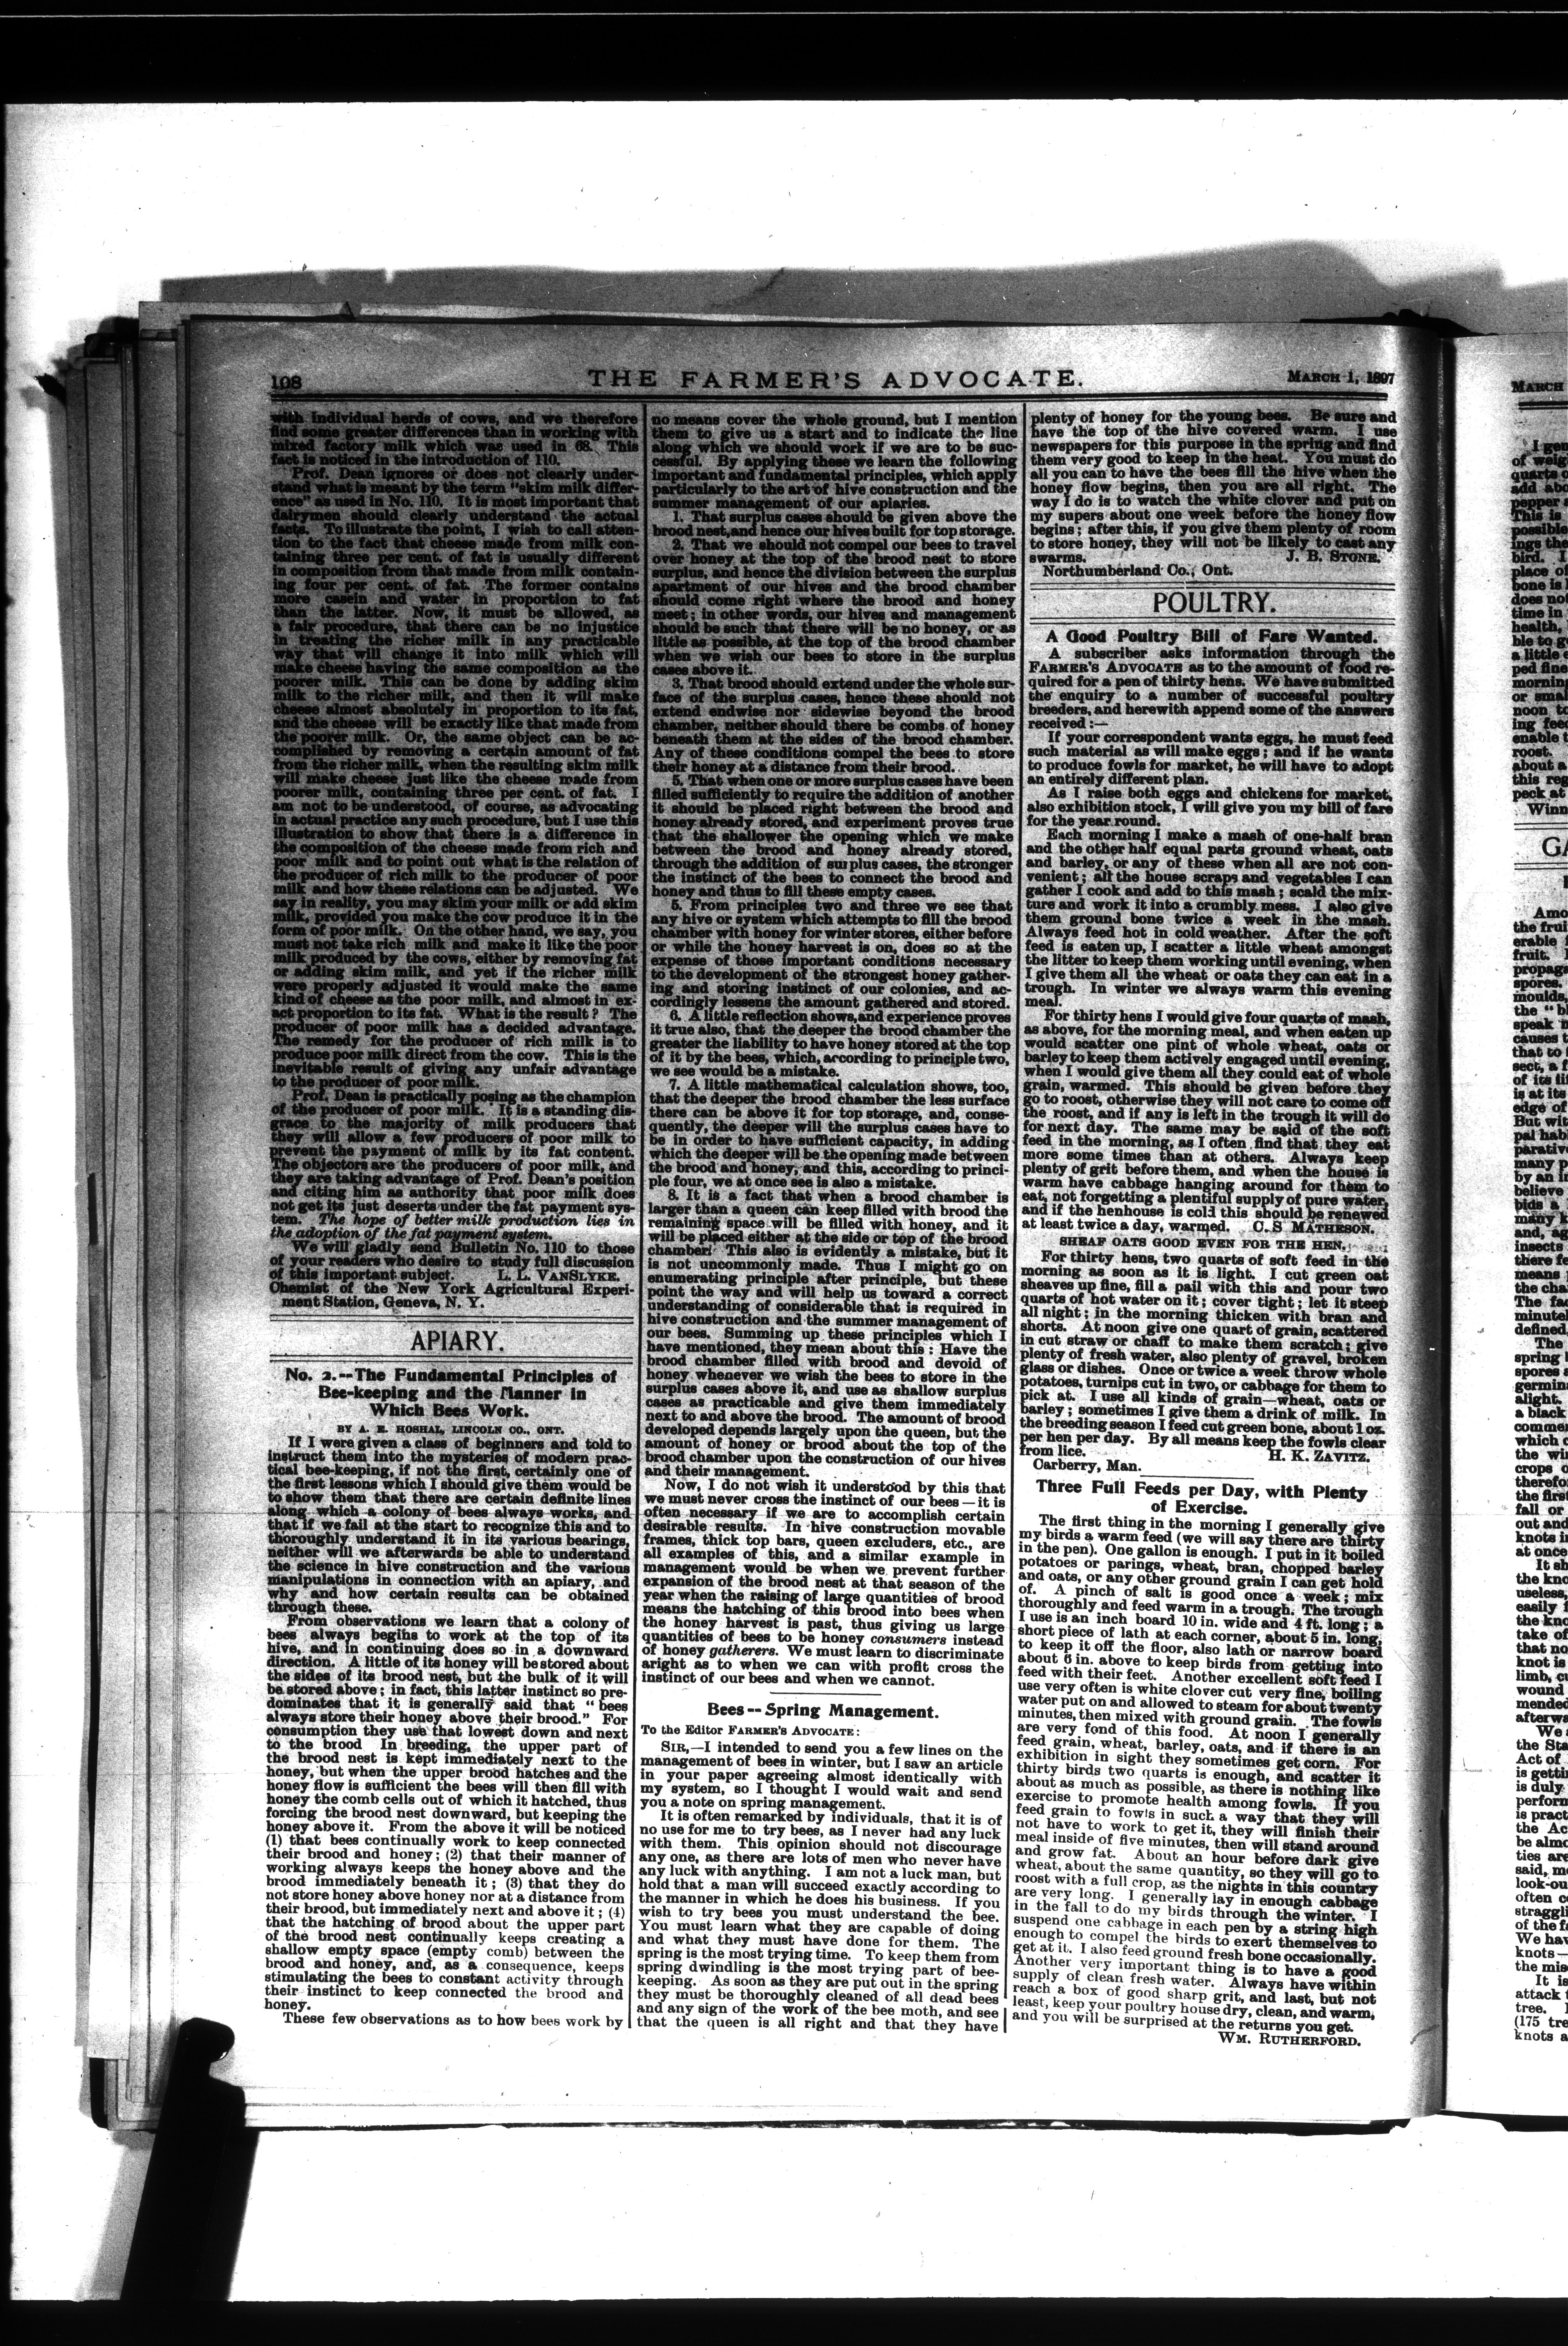 108
THE FARMER'S ADVOCATE.
MARCH 1, 1897
with individual herds of cows, and we therefore
find some greater differences than in working with
mixed factory milk which was used in 68. This
fact is noticed in the introduction of 110.
Prof. Dean ignores or does not clearly under-
stand what is meant by the term "skim milk differ-
ence" as used in No. 110. It is most important that
dairymen should clearly understand the actual
facts. To illustrate the point, I wish to call atten-
tion to the fact that cheese made from milk con-
taining three per cent. of fat is usually different
in composition from that made from milk contain-
ing four per cent. of fat. The former contains
more casein and water in proportion to fat
than the latter. Now, it must be allowed, as
a fair procedure, that there can be no injustice
in treating the richer milk in any practicable
way that will change it into milk which will
make cheese having the same composition as the
poorer milk. This can be done by adding skim
milk to the richer milk, and then it will make
cheese almost absolutely in proportion to its fat,
and the cheese will be exactly like that made from
the poorer milk. Or, the same object can be ac-
complished by removing a certain amount of fat
from the richer milk, when the resulting skim milk
will make cheese just like the cheese made from
poorer milk, containing three per cent. of fat. I
am not to be understood, of course, as advocating
in actual practice any such procedure, but I use this
illustration to show that there is a difference in
the composition of the cheese made from rich and
poor milk and to point out what is the relation of
the producer of rich milk to the producer of poor
milk and how these relations can be adjusted. We
say in reality, you may skim your milk or add skim
milk, provided you make the cow produce it in the
form of poor milk. On the other hand, we say, you
must not take rich milk and make it like the poor
milk produced by the cows, either by removing fat
or adding skim milk, and yet if the richer milk
were properly adjusted it would make the same
kind of cheese as the poor milk, and almost in ex-
act proportion to its fat. What is the result? The
producer of poor milk has a decided advantage.
The remedy for the producer of rich milk is to
produce poor milk direct from the cow. This is the
inevitable result of giving any unfair advantage
to the producer of poor milk.
Prof. Dean is practically posing as the champion
of the producer of poor milk. It is a standing dis-
grace to the majority of milk producers that
they will allow a few producers of poor milk to
prevent the payment of milk by its fat content.
The objectors are the producers of poor milk, and
they are taking advantage of Prof. Dean's position
and citing him as authority that poor milk does
not get its just deserts under the fat payment sys-
tem. The hope of better milk production lies in
the adoption of the fat payment system.
We will gladly send Bulletin No. 110 to those
of your readers who desire to study full discussion
of this important subject. L. L. VANSLYKE.
Chemist of the New York Agricultural Experi-
ment Station, Geneva, N. Y.
APIARY.
No. 2.--The Fundamental Principles of
Bee-keeping and the Manner in
Which Bees Work.
BY A. E. HOSHAL, LINCOLN CO., ONT.
If I were given a class of beginners and told to
instruct them into the mysteries of modern prac-
tical bee-keeping, if not the first, certainly one of
the first lessons which I should give them would be
to show them that there are certain definite lines
along which a colony of bees always works, and
that if we fail at the start to recognize this and to
thoroughly understand it in its various bearings,
neither will we afterwards be able to understand
the science in hive construction and the various
manipulations in connection with an apiary, and
why and how certain results can be obtained
through these.
From observations we learn that a colony of
bees always begins to work at the top of its
hive, and in continuing does so in a downward
direction. A little of its honey will be stored about
the sides of its brood nest, but the bulk of it will
be stored above; in fact, this latter instinct so pre-
dominates that it is generally said that "bees
always store their honey above their brood." For
consumption they use that lowest down and next
to the brood In breeding, the upper part of
the brood nest is kept immediately next to the
honey, but when the upper brood hatches and the
honey flow is sufficient the bees will then fill with
honey the comb cells out of which it hatched, thus
forcing the brood nest downward, but keeping the
honey above it. From the above it will be noticed
(1) that bees continually work to keep connected
their brood and honey; (2) that their manner of
working always keeps the honey above and the
brood immediately beneath it; (3) that they do
not store honey above honey nor at a distance from
their brood, but immediately next and above it; (4)
that the hatching of brood about the upper part
of the brood nest continually keeps creating a
shallow empty space (empty comb) between the
brood and honey, and, as a consequence, keeps
stimulating the bees to constant activity through
their instinct to keep connected the brood and
honey.
These few observations as to how bees work by
no means cover the whole ground, but I mention
them to give us a start and to indicate the line
along which we should work if we are to be suc-
cessful. By applying these we learn the following
important and fundamental principles, which apply
particularly to the art of hive construction and the
summer management of our apiaries.
1. That surplus cases should be given above the
brood nest, and hence our hives built for top storage.
2. That we should not compel our bees to travel
over honey at the top of the brood nest to store
surplus, and hence the division between the surplus
apartment of our hives and the brood chamber
should come right where the brood and honey
meet; in other words, our hives and management
should be such that there will be no honey, or as
little as possible, at the top of the brood chamber
when we wish our bees to store in the surplus
cases above it.
3. That brood should extend under the whole sur-
face of the surplus cases, hence these should not
extend endwise nor sidewise beyond the brood
chamber, neither should there be combs of honey
beneath them at the sides of the brood chamber.
Any of these conditions compel the bees to store
their honey at a distance from their brood.
5. That when one or more surplus cases have been
filled sufficiently to require the addition of another
it should be placed right between the brood and
honey already stored, and experiment proves true
that the shallower the opening which we make
between the brood and honey already stored,
through the addition of surplus cases, the stronger
the instinct of the bees to connect the brood and
honey and thus to fill these empty cases.
5. From principles two and three we see that
any hive or system which attempts to fill the brood
chamber with honey for winter stores, either before
or while the honey harvest is on, does so at the
expense of those important conditions necessary
to the development of the strongest honey gather-
ing and storing instinct of our colonies, and ac-
cordingly lessens the amount gathered and stored.
6. A little reflection shows, and experience proves
it true also, that the deeper the brood chamber the
greater the liability to have honey stored at the top
of it by the bees, which, according to principle two,
we see would be a mistake.
7. A little mathematical calculation shows, too,
that the deeper the brood chamber the less surface
there can be above it for top storage, and, conse-
quently, the deeper will the surplus cases have to
be in order to have sufficient capacity, in adding
which the deeper will be the opening made between
the brood and honey, and this, according to princi-
ple four, we at once see is also a mistake.
8. It is a fact that when a brood chamber is
larger than a queen can keep filled with brood the
remaining space will be filled with honey, and it
will be placed either at the side or top of the brood
chamber. This also is evidently a mistake, but it
is not uncommonly made. Thus I might go on
enumerating principle after principle, but these
point the way and will help us toward a correct
understanding of considerable that is required in
hive construction and the summer management of
our bees. Summing up these principles which I
have mentioned, they mean about this: Have the
brood chamber filled with brood and devoid of
honey whenever we wish the bees to store in the
surplus cases above it, and use as shallow surplus
cases as practicable and give them immediately
next to and above the brood. The amount of brood
developed depends largely upon the queen, but the
amount of honey or brood about the top of the
brood chamber upon the construction of our hives
and their management.
Now, I do not wish it understood by this that
we must never cross the instinct of our bees — it is
often necessary if we are to accomplish certain
desirable results. In hive construction movable
frames, thick top bars, queen excluders, etc., are
all examples of this, and a similar example in
management would be when we prevent further
expansion of the brood nest at that season of the
year when the raising of large quantities of brood
means the hatching of this brood into bees when
the honey harvest is past, thus giving us large
quantities of bees to be honey consumers instead
of honey gatherers. We must learn to discriminate
aright as to when we can with profit cross the
instinct of our bees and when we cannot.
Bees -- Spring Management.
To the Editor FARMER'S ADVOCATE:
SIR,—I intended to send you a few lines on the
management of bees in winter, but I saw an article
in your paper agreeing almost identically with
my system, so I thought I would wait and send
you a note on spring management.
It is often remarked by individuals, that it is of
no use for me to try bees, as I never had any luck
with them. This opinion should not discourage
any one, as there are lots of men who never have
any luck with anything. I am not a luck man, but
hold that a man will succeed exactly according to
the manner in which he does his business. If you
wish to try bees you must understand the bee.
You must learn what they are capable of doing
and what they must have done for them. The
spring is the most trying time. To keep them from
spring dwindling is the most trying part of bee-
keeping. As soon as they are put out in the spring
they must be thoroughly cleaned of all dead bees
and any sign of the work of the bee moth, and see
that the queen is all right and that they have
plenty of honey for the young bees. Be sure and
have the top of the hive covered warm. I use
newspapers for this purpose in the spring and find
them very good to keep in the heat. You must do
all you can to have the bees fill the hive when the
honey flow begins, then you are all right. The
way I do is to watch the white clover and put on
my supers about one week before the honey flow
begins; after this, if you give them plenty of room
to store honey, they will not be likely to cast any
swarms. J. B. STONE.
Northumberland Co., Ont.
POULTRY.
A Good Poultry Bill of Fare Wanted.
A subscriber asks information through the
FARMER'S ADVOCATE as to the amount of food re-
quired for a pen of thirty hens. We have submitted
the enquiry to a number of successful poultry
breeders, and herewith append some of the answers
received:—
If your correspondent wants eggs, he must feed
such material as will make eggs; and if he wants
to produce fowls for market, he will have to adopt
an entirely different plan.
As I raise both eggs and chickens for market,
also exhibition stock, I will give you my bill of fare
for the year round.
Each morning I make a mash of one-half bran
and the other half equal parts ground wheat, oats
and barley, or any of these when all are not con-
venient; all the house scraps and vegetables I can
gather I cook and add to this mash; scald the mix-
ture and work it into a crumbly mess. I also give
them ground bone twice a week in the mash.
Always feed hot in cold weather. After the soft
feed is eaten up, I scatter a little wheat amongst
the litter to keep them working until evening, when
I give them all the wheat or oats they can eat in a
trough. In winter we always warm this evening
meal.
For thirty hens I would give four quarts of mash,
as above, for the morning meal, and when eaten up
would scatter one pint of whole wheat, oats or
barley to keep them actively engaged until evening,
when I would give them all they could eat of whole
grain, warmed. This should be given before they
go to roost, otherwise they will not care to come off
the roost, and if any is left in the trough it will do
for next day. The same may be said of the soft
feed in the morning, as I often find that they eat
more some times than at others. Always keep
plenty of grit before them, and when the house is
warm have cabbage hanging around for them to
eat, not forgetting a plentiful supply of pure water,
and if the henhouse is cold this should be renewed
at least twice a day, warmed. C. S MATHESON.
SHEAF OATS GOOD EVEN FOR THE HEN.
For thirty hens, two quarts of soft feed in the
morning as soon as it is light. I cut green oat
sheaves up fine, fill a pail with this and pour two
quarts of hot water on it; cover tight; let it steep
all night; in the morning thicken with bran and
shorts. At noon give one quart of grain, scattered
in cut straw or chaff to make them scratch; give
plenty of fresh water, also plenty of gravel, broken
glass or dishes. Once or twice a week throw whole
potatoes, turnips cut in two, or cabbage for them to
pick at. I use all kinds of grain—wheat, oats or
barley; sometimes I give them a drink of milk. In
the breeding season I feed cut green bone, about 1 oz.
per hen per day. By all means keep the fowls clear
from lice. H. K. ZAVITZ.
Carberry, Man.
Three Full Feeds per Day, with Plenty
of Exercise.
The first thing in the morning I generally give
my birds a warm feed (we will say there are thirty
in the pen). One gallon is enough. I put in it boiled
potatoes or parings, wheat, bran, chopped barley
and oats, or any other ground grain I can get hold
of. A pinch of salt is good once a week; mix
thoroughly and feed warm in a trough. The trough
I use is an inch board 10 in. wide and 4 ft. long; a
short piece of lath at each corner, about 5 in. long,
to keep it off the floor, also lath or narrow board
about 6 in. above to keep birds from getting into
feed with their feet. Another excellent soft feed I
use very often is white clover cut very fine, boiling
water put on and allowed to steam for about twenty
minutes, then mixed with ground grain. The fowls
are very fond of this food. At noon I generally
feed grain, wheat, barley, oats, and if there is an
exhibition in sight they sometimes get corn. For
thirty birds two quarts is enough, and scatter it
about as much as possible, as there is nothing like
exercise to promote health among fowls. If you
feed grain to fowls in such a way that they will
not have to work to get it, they will finish their
meal inside of five minutes, then will stand around
and grow fat. About an hour before dark give
wheat, about the same quantity, so they will go to
roost with a full crop, as the nights in this country
are very long. I generally lay in enough cabbage
in the fall to do my birds through the winter. I
suspend one cabbage in each pen by a string high
enough to compel the birds to exert themselves to
get at it. I also feed ground fresh bone occasionally.
Another very important thing is to have a good
supply of clean fresh water. Always have within
reach a box of good sharp grit, and last, but not
least, keep your poultry house dry, clean, and warm,
and you will be surprised at the returns you get.
WM. RUTHERFORD.
MARCH